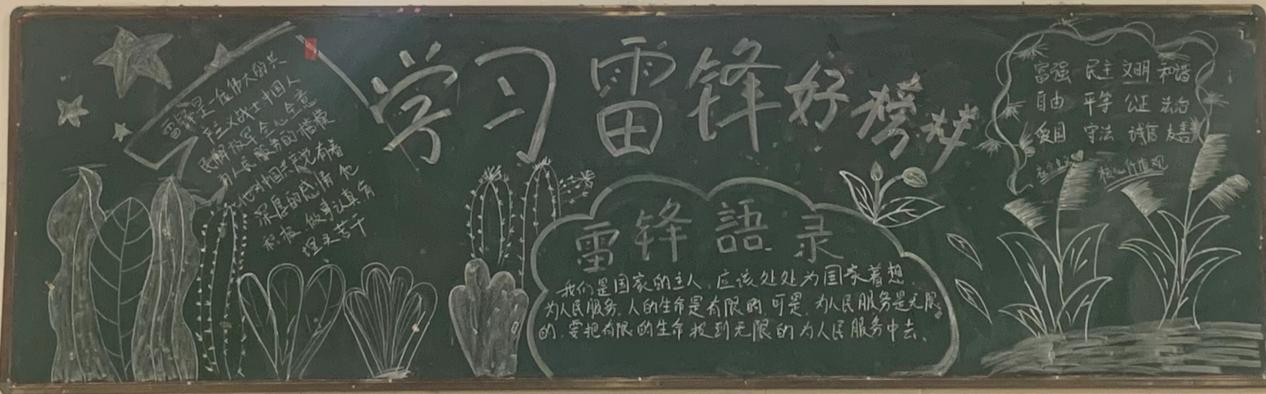 学习雷锋好榜样
雷锋是一位伟大的共
产主义战士中国人
民解放军全心全意
为人民服务的楷模
他对中国共党有着
深厚的感情他
积极做事认真肯
埋头苦干
雷锋語录
我们是国家的主人,应该处处为国家着想,
为人民服务,人的生命是有限的,可是,为人民服务是无限
的,要把有限的生命投到无限的为人民服务中去。
富强 民主 文明 和谐
自由 平等 公正 法治
爱国 守法 诚信 友善
核心价值观